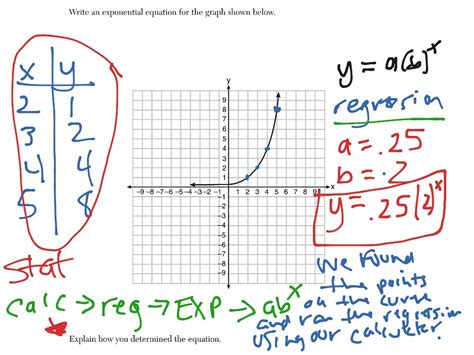 Write an exponential equation for the graph shown below.
y = a(b)^x
regression
a = .25
b = .2
y = .25(2)^x
x y
2 1
3 2
4 4
5 8
y
9
8
7
6
5
4
3
2
1
-9 -8 -7 -6 -5 -4 -3 -2 -1 1 2 3 4 5 6 7 8 9 x
-1
-2
-3
-4
-5
-6
-7
-8
-9
Stat
calc → reg → EXP → ab^x
We found
the points
on the curve
and ran the regression
using our calculator.
Explain how you determined the equation.